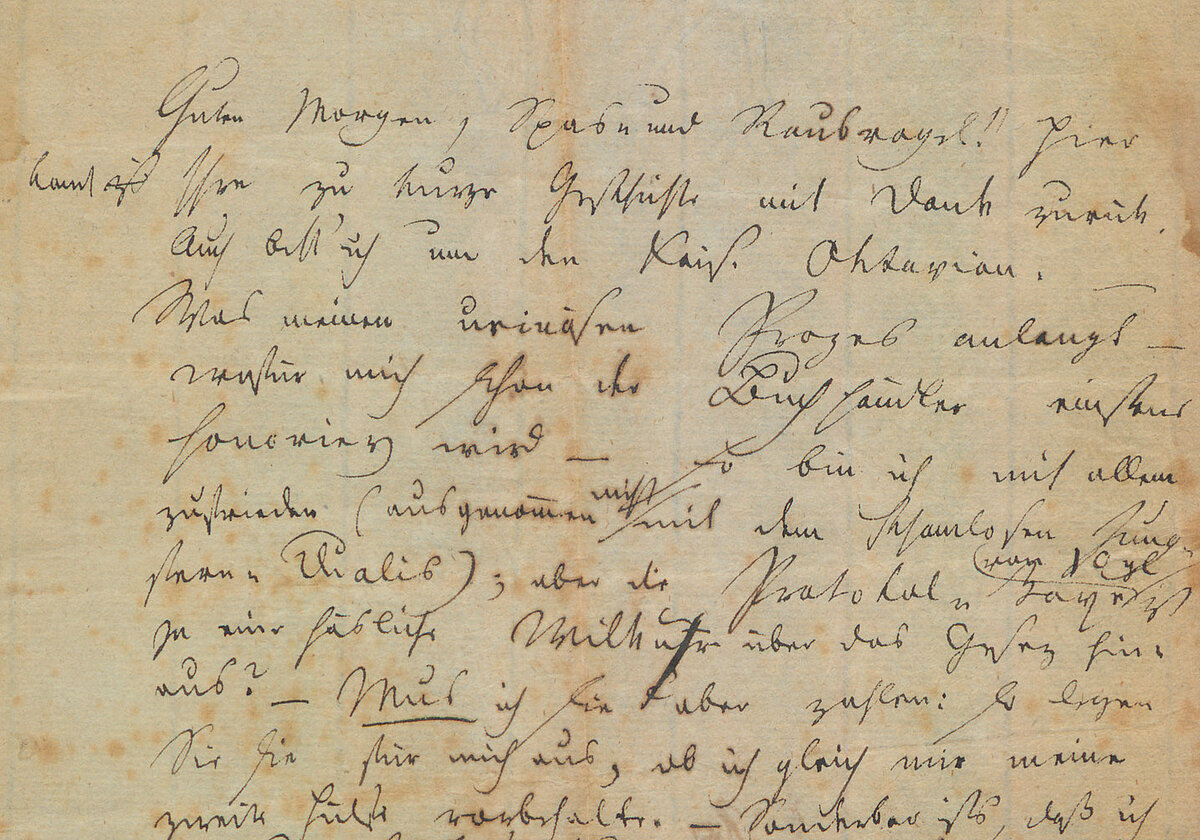 Guten Morgen, Spas- und Raubvogel! Hier
kommt Ihre zu kurze Geschichte mit Dank zurük.
Auch bitt' ich um den Kais. Oktavian. —
Was meinen urinösen Prozes anlangt —
wofür mich schon der Buchhändler einstens
honorieren wird — so bin ich mit allem
zufrieden (ausgenommen nicht mit dem schamlosen Jung-
fern- Dualis); aber die Protokol- Taxe
von 1 Xgl
ja eine häsliche Wilkühr über das Gesez hin-
aus? — Mus ich sie aber zahlen: so legen
Sie sie für mich aus, ob ich gleich mir meine
zweite Hülfe vorbehalte. — Sonderbar ists, daß ich